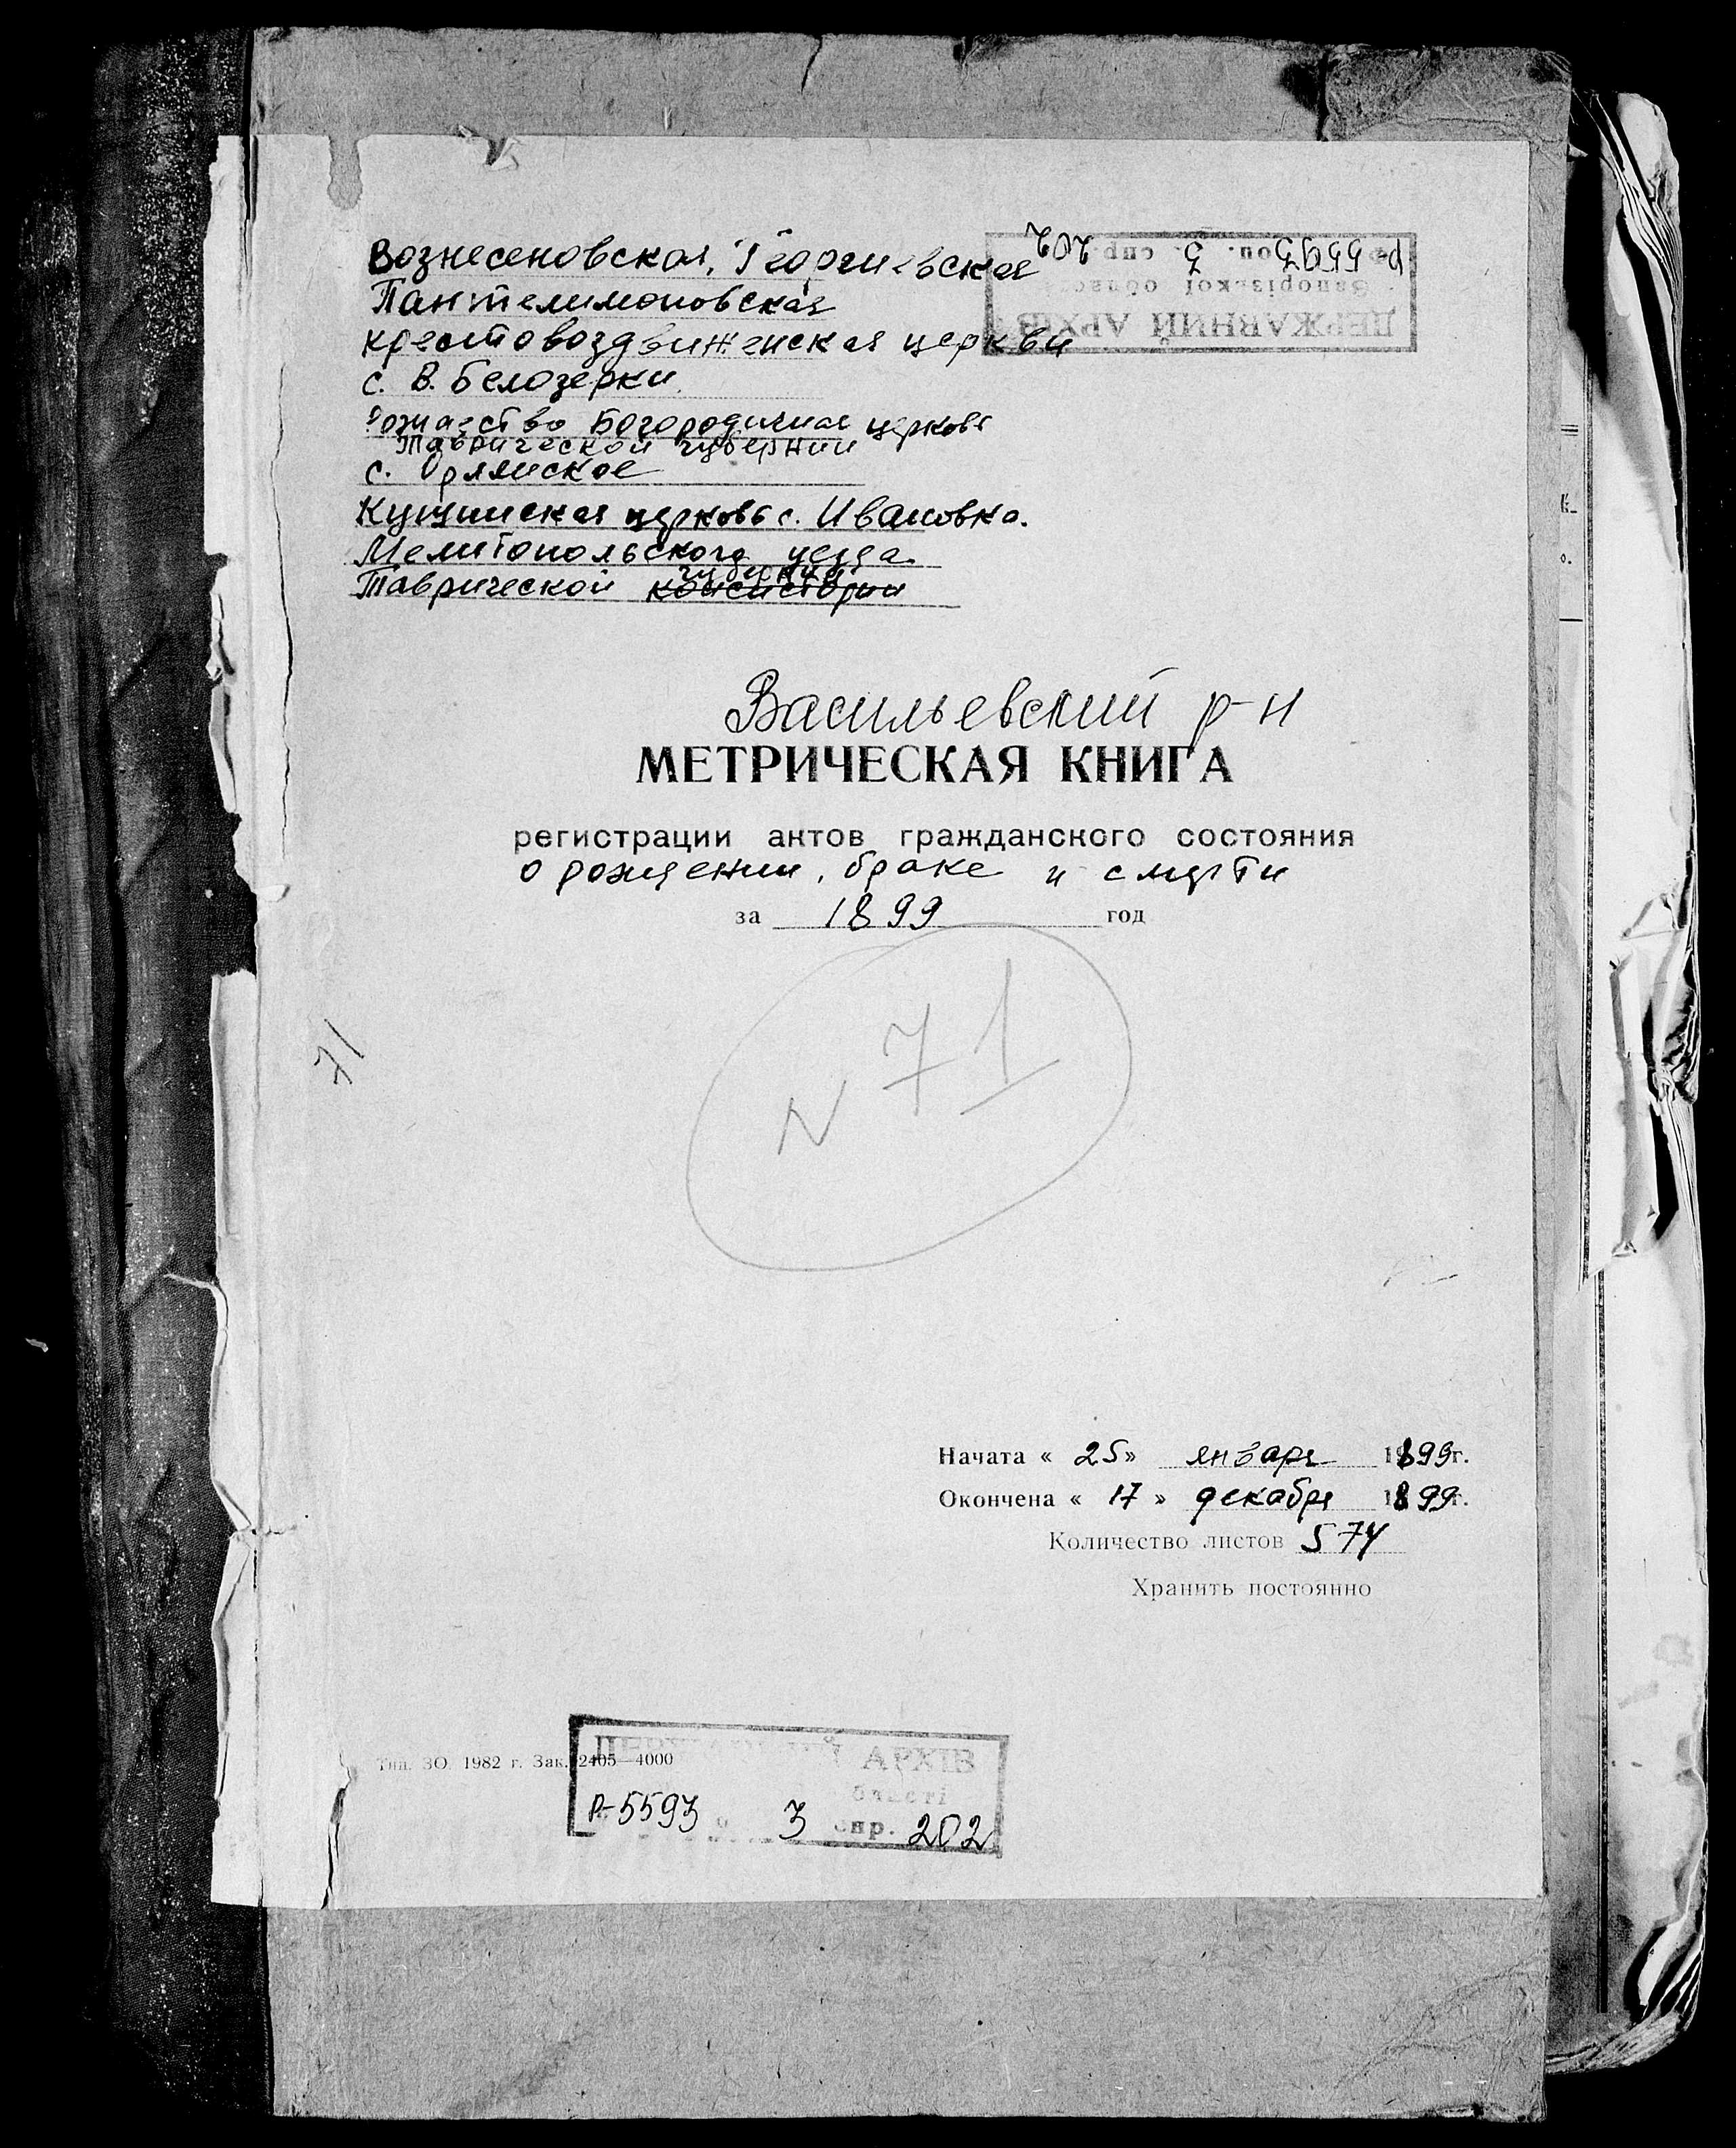 Вознесеновская, Георгиевская
Пантелимоновская
крестовоздвиженская церкви
с. В. Белозерки
Рождество Богородичная церковь
Таврической губернии
с. Орлянское
церковь с. Ивановка.
Мелитопольского уезда
губернии
Таврической консистории
ДЕРЖАВНИЙ АРХІВ
Запорізької області
Р-5593 оп. 3 спр. 202
Васильевский р-н
МЕТРИЧЕСКАЯ КНИГА
регистрации актов гражданского состояния
о рождении, браке и смерти
за 1899 год
N 71
71
Начата « 25» января 1899г.
Окончена « 17 » декабря 1899г.
Количество листов 574
Хранить постоянно
Тип. ЗО. 1982 г. Зак. 2405—4000
ДЕРЖАВНИЙ АРХІВ
області
Р-5593 3 спр. 202
К-
о.